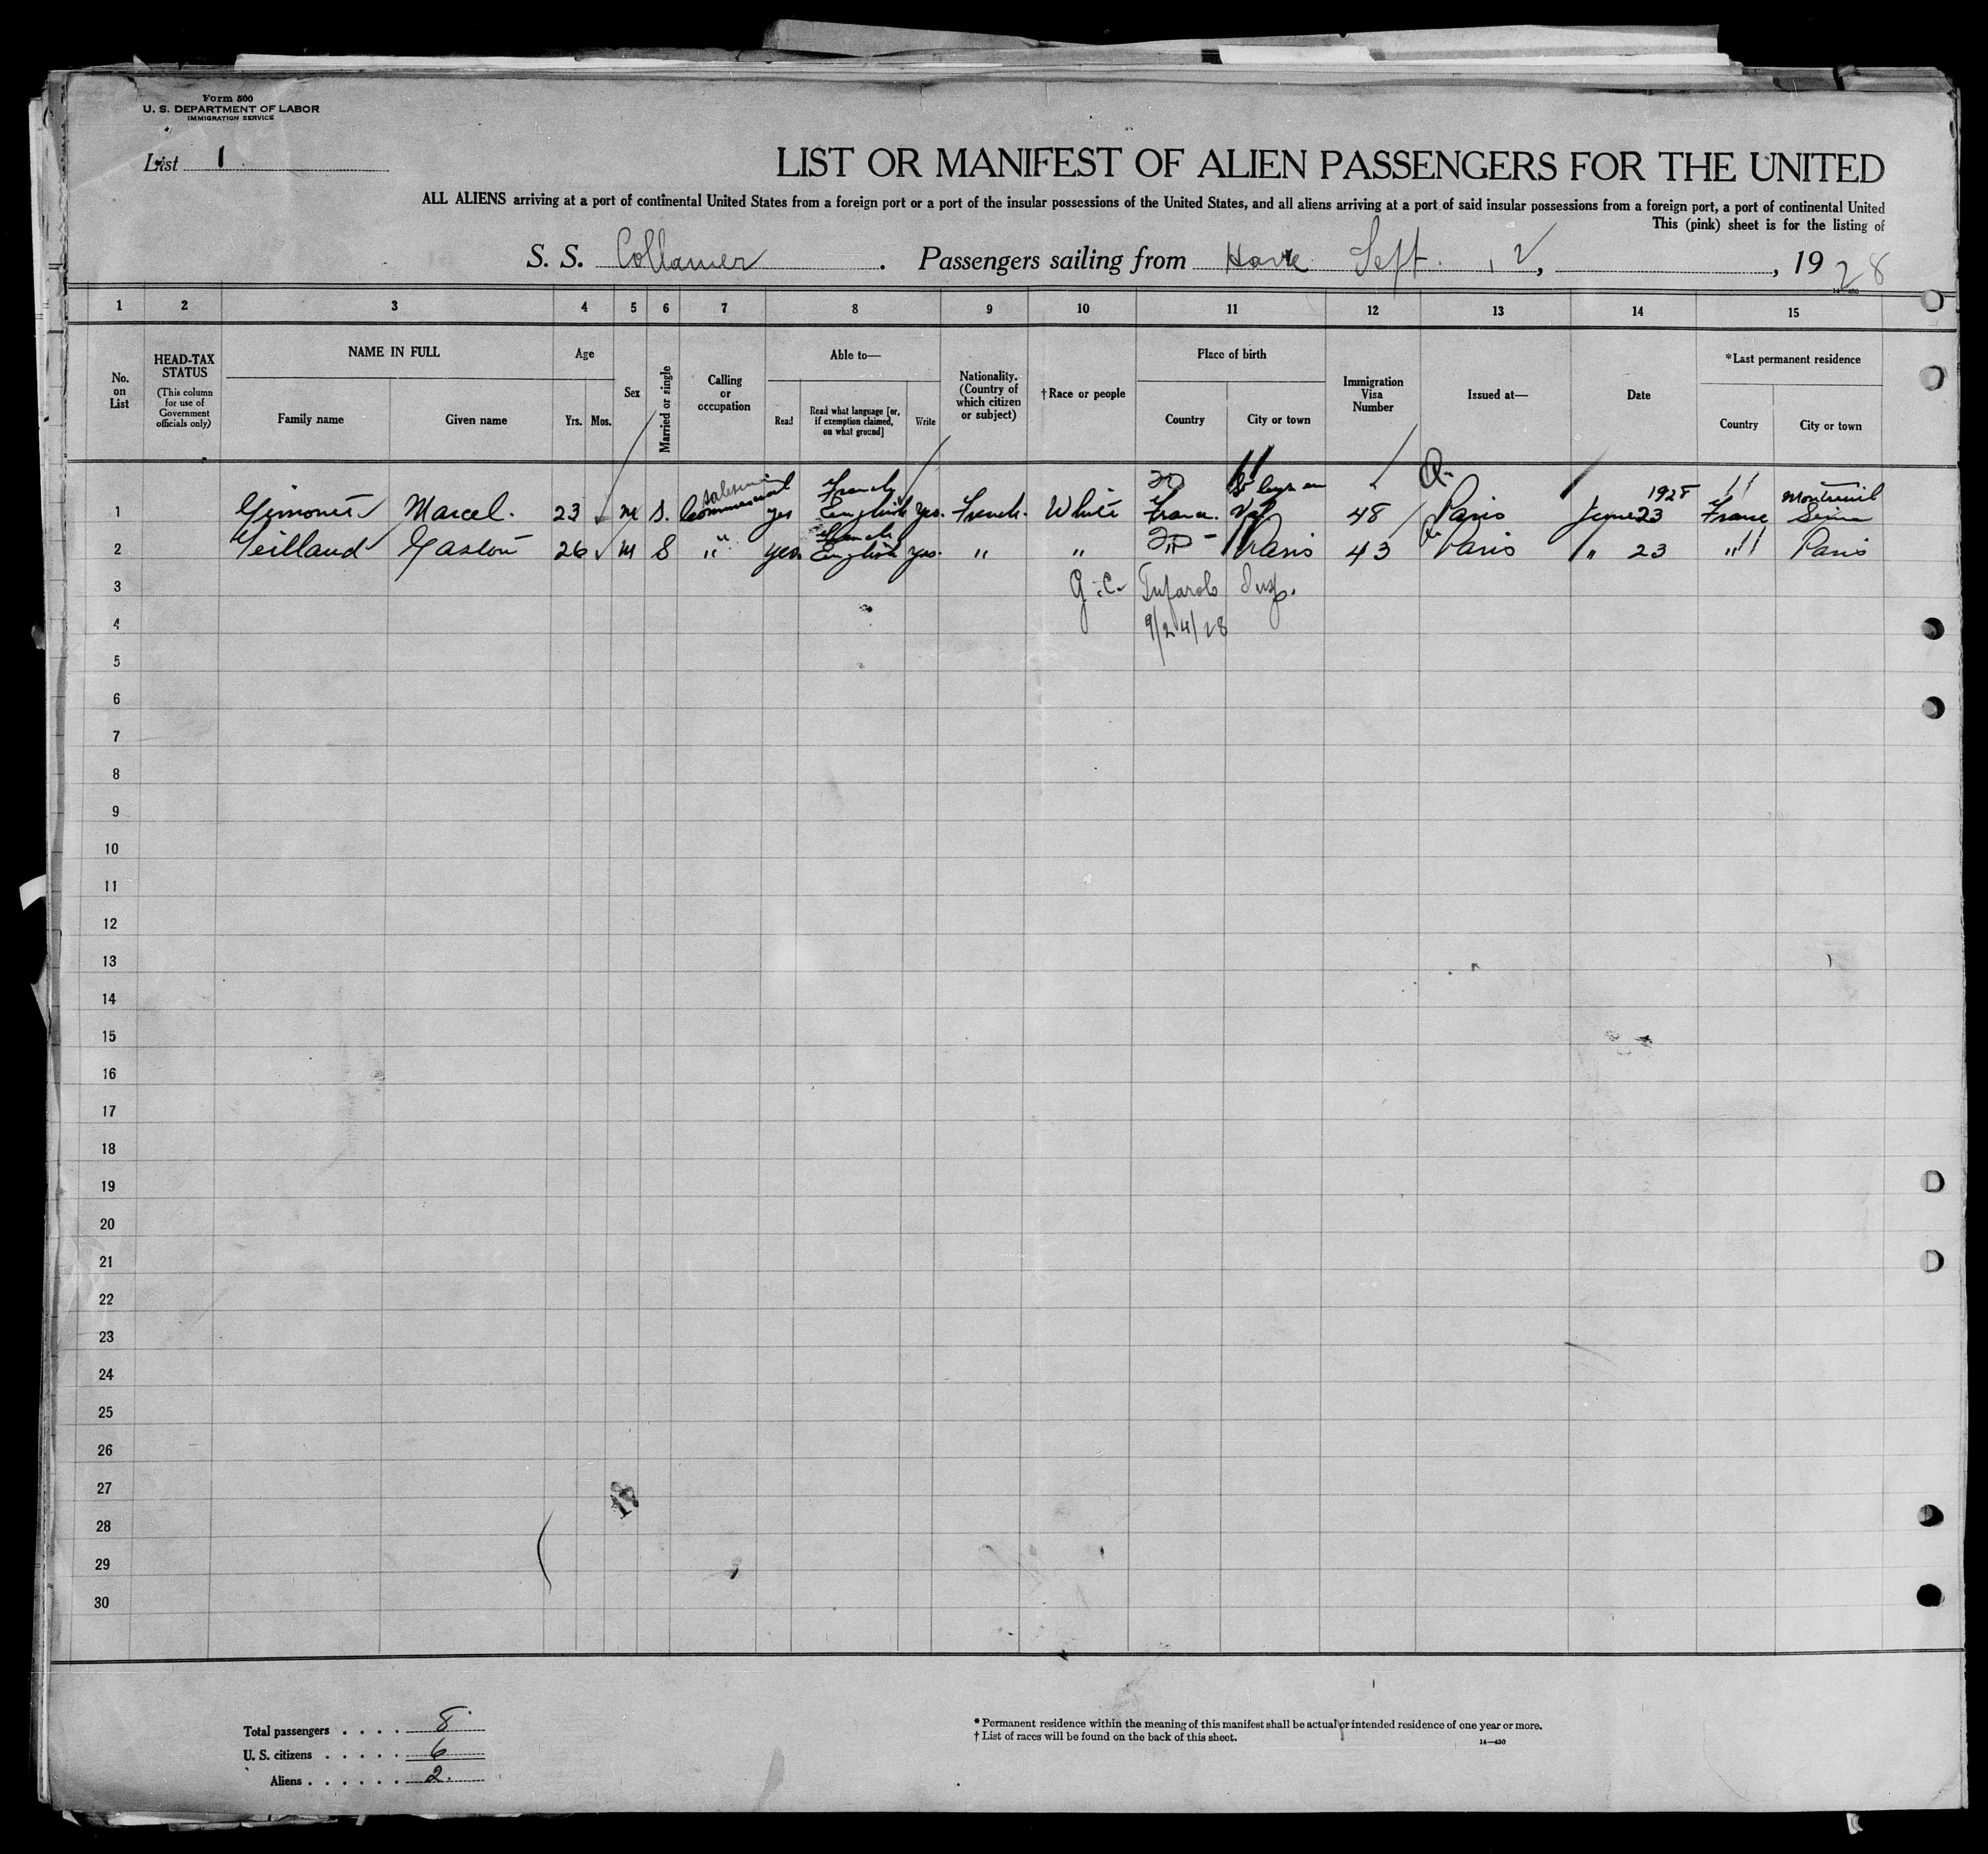 Form 500
U. S. DEPARTMENT OF LABOR
IMMIGRATION SERVICE
List 1
LIST OR MANIFEST OF ALIEN PASSENGERS FOR THE UNITED
ALL ALIENS arriving at a port of continental United States from a foreign port or a port of the insular possessions of the United States, and all aliens arriving at a port of said insular possessions from a foreign port, a port of continental United
This (pink) sheet is for the listing of
S. S. Collamer . Passengers sailing from Havre Sept. 12, , 1928
14—430
1 2 3 4 5 6 7 8 9 10 11 12 13 14 15
No. on List
HEAD-TAX STATUS
(This column for use of Government officials only)
NAME IN FULL
Family name Given name
Age
Yrs. Mos.
Sex
Married or single
Calling or occupation
Able to—
Read Read what language [or, if exemption claimed, on what ground] Write
Nationality. (Country of which citizen or subject)
†Race or people
Place of birth
Country City or town
Immigration Visa Number
Issued at—
Date
*Last permanent residence
Country City or town
1 Marcel. 23 M S. Commercial yes French English Yes. French. White France. 48 Paris 1928 June 23 France Montreuil Seine
2 Gaston 26 M S " yes French English Yes. " " " Paris 43 Paris " 23 " Paris
3 G. C. Insp.
4 9/24/28
5
6
7
8
9
10
11
12
13
14
15
16
17
18
19
20
21
22
23
24
25
26
27
28
29
30
Total passengers . . . . 8
U. S. citizens . . . . . 6
Aliens . . . . . . 2.
* Permanent residence within the meaning of this manifest shall be actual or intended residence of one year or more.
† List of races will be found on the back of this sheet.
14—430